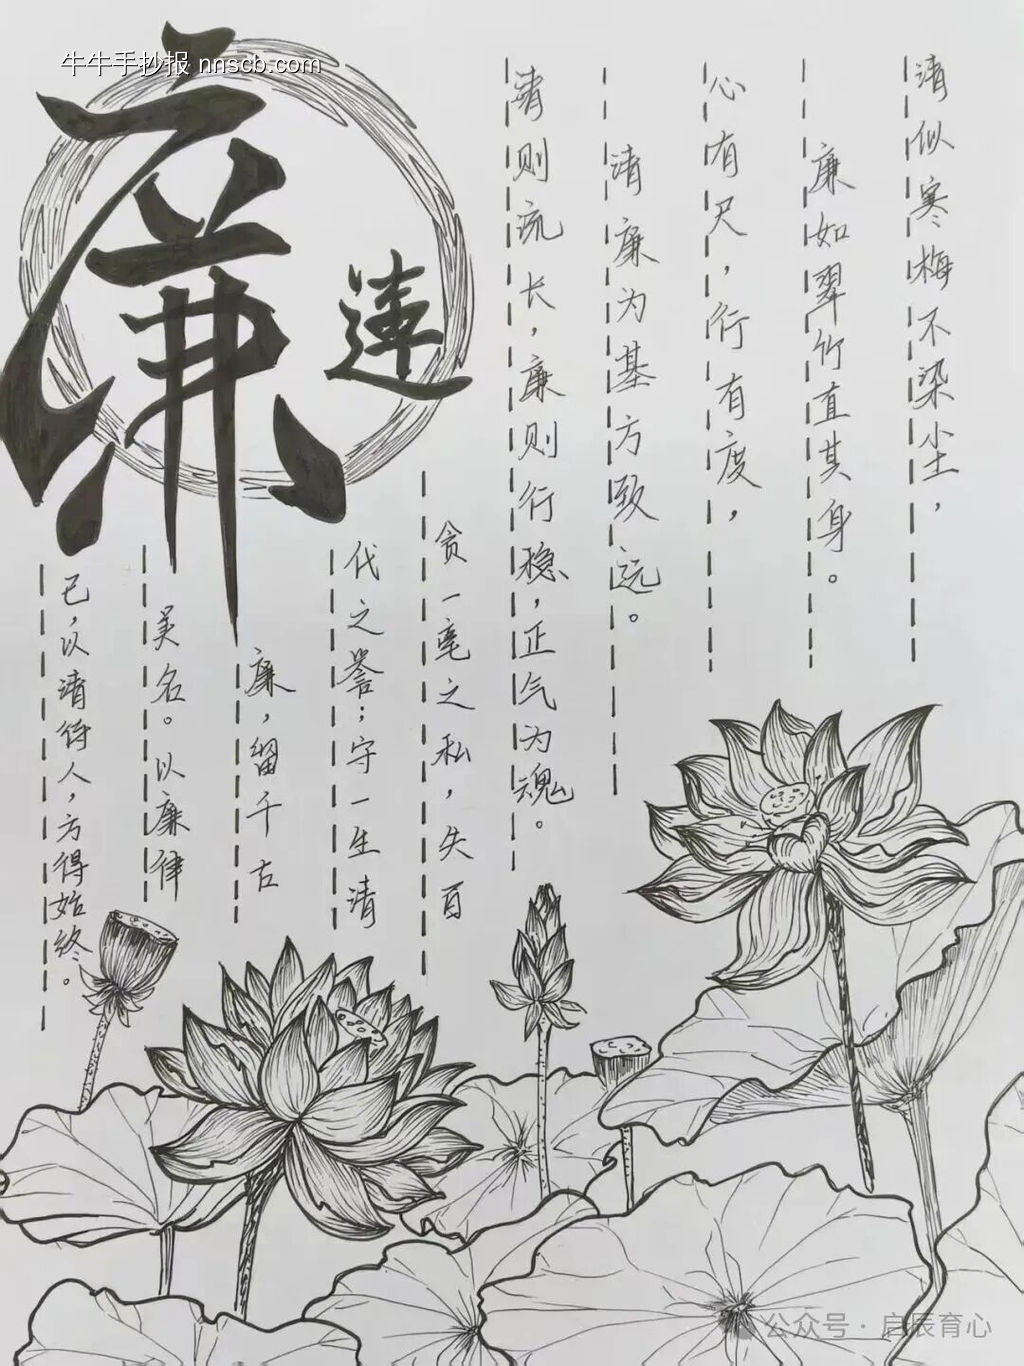 牛牛手抄报 nnscb.com
廉
莲
清似寒梅不染尘，
廉如翠竹直其身。
心有尺，行有度，
清廉为基方致远。
清则流长，廉则行稳，正气为魂。
贪一毫之私，失百
代之誉；守一生清
廉，留千古
美名。以廉律
己，以清待人，方得始终。
公众号·启辰育心